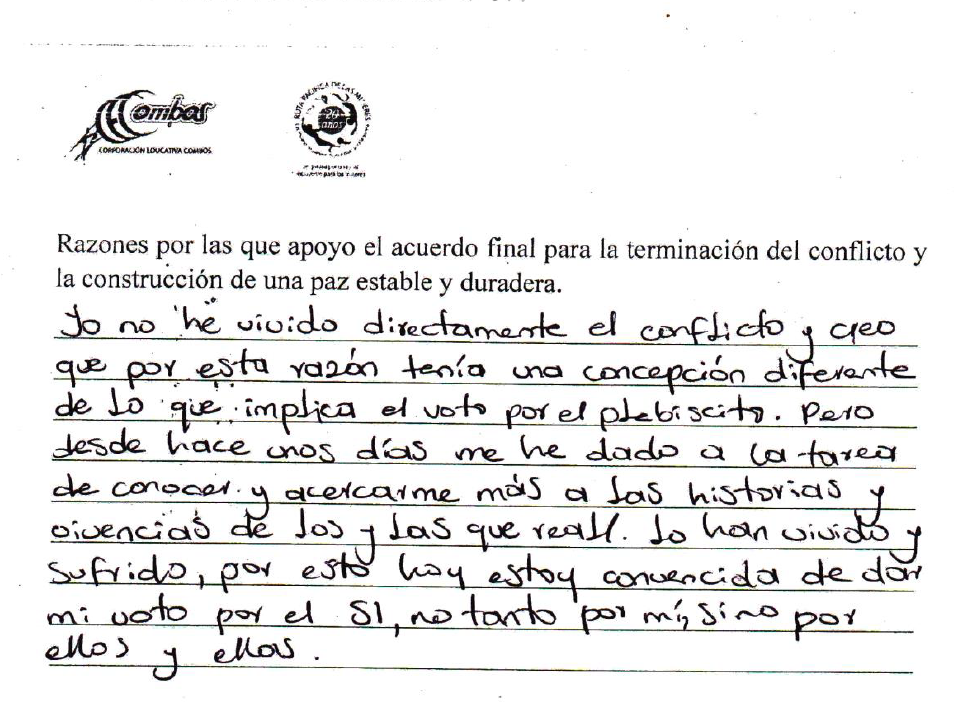 Combos
CORPORACIÓN EDUCATIVA COMBOS
RUTA PACÍFICA DE LAS MUJERES
20
años
Razones por las que apoyo el acuerdo final para la terminación del conflicto y
la construcción de una paz estable y duradera.
Yo no he vivido directamente el conflicto y creo
que por esta razón tenía una concepción diferente
de lo que implica el voto por el plebiscito. Pero
desde hace unos días me he dado a la tarea
de conocer y acercarme más a las historias y
vivencias de los y las que real/. lo han vivido y
sufrido, por esto hoy estoy convencida de dar
mi voto por el SI, no tanto por mí, sino por
ellos y ellas.